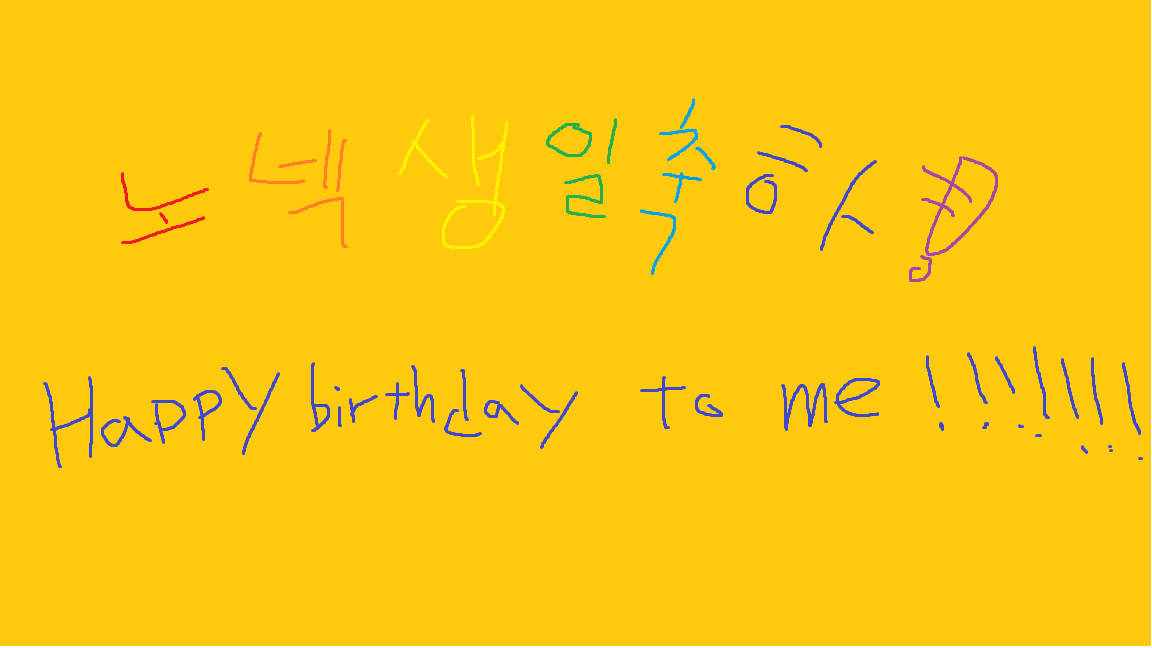 노넥생일축하!
Happy birthday to me!!!!!!!